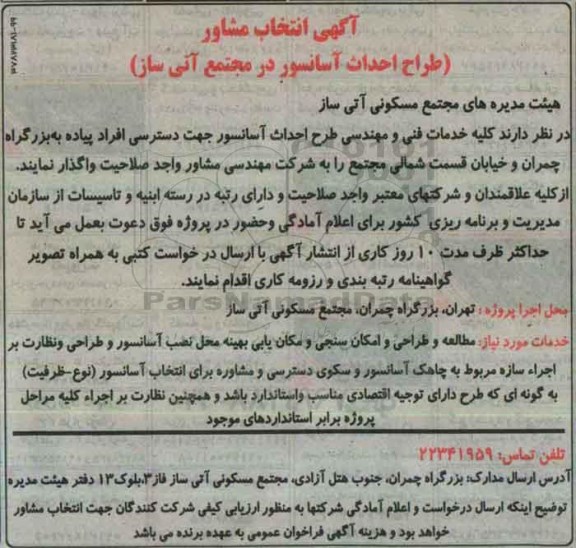 آگهی انتخاب مشاور
(طراح احداث آسانسور در مجتمع آتی ساز)
هیئت مدیره های مجتمع مسکونی آتی ساز
در نظر دارند کلیه خدمات فنی و مهندسی طرح احداث آسانسور جهت دسترسی افراد پیاده به‌بزرگراه
چمران و خیابان قسمت شمالی مجتمع را به شرکت مهندسی مشاور واجد صلاحیت واگذار نمایند.
ازکلیه علاقمندان و شرکتهای معتبر واجد صلاحیت و دارای رتبه در رسته ابنیه و تاسیسات از سازمان
مدیریت و برنامه ریزی کشور برای اعلام آمادگی وحضور در پروژه فوق دعوت بعمل می آید تا
حداکثر ظرف مدت ۱۰ روز کاری از انتشار آگهی با ارسال در خواست کتبی به همراه تصویر
گواهینامه رتبه بندی و رزومه کاری اقدام نمایند.
ParsNamadData
محل اجرا پروژه: تهران، بزرگراه چمران، مجتمع مسکونی آتی ساز
خدمات مورد نیاز: مطالعه و طراحی و امکان سنجی و مکان یابی بهینه محل نصب آسانسور و طراحی ونظارت بر
اجراء سازه مربوط به چاهک آسانسور و سکوی دسترسی و مشاوره برای انتخاب آسانسور (نوع-ظرفیت)
به گونه ای که طرح دارای توجیه اقتصادی مناسب واستاندارد باشد و همچنین نظارت بر اجراء کلیه مراحل
پروژه برابر استانداردهای موجود
تلفن تماس: ۲۲۳۴۱۹۵۹
آدرس ارسال مدارک: بزرگراه چمران، جنوب هتل آزادی، مجتمع مسکونی آتی ساز فاز۳،بلوک۱۳ دفتر هیئت مدیره
توضیح اینکه ارسال درخواست و اعلام آمادگی شرکتها به منظور ارزیابی کیفی شرکت کنندگان جهت انتخاب مشاور
خواهد بود و هزینه آگهی فراخوان عمومی به عهده برنده می باشد